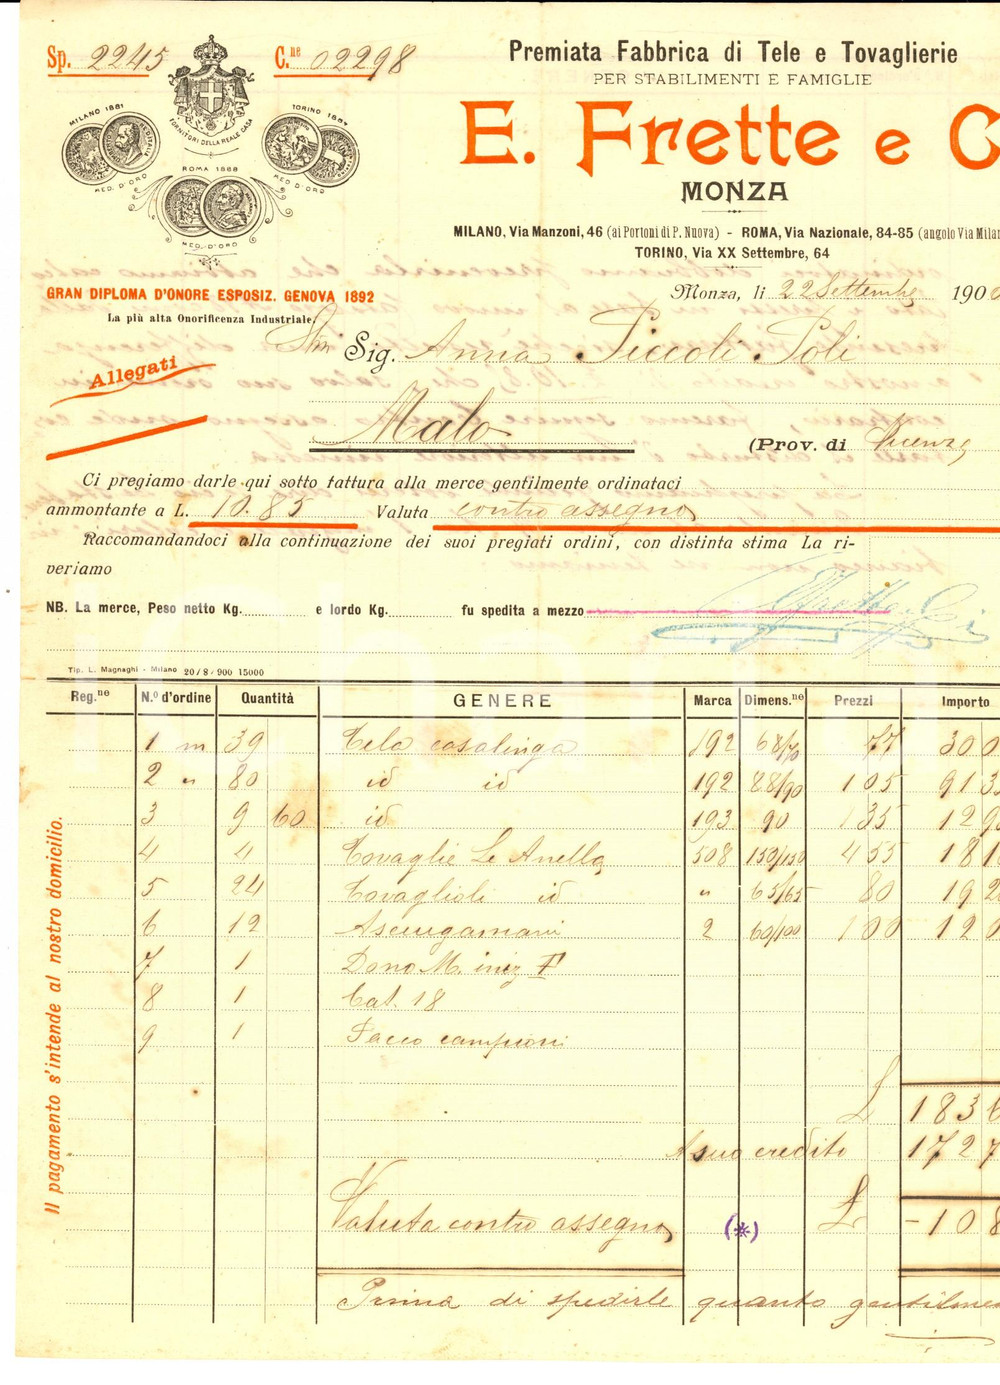 Sp. 2245
C.ne 02298
Premiata Fabbrica di Tele e Tovaglierie
PER STABILIMENTI E FAMIGLIE
E. Frette e C
MONZA
MILANO, Via Manzoni, 46 (ai Portoni di P. Nuova) - ROMA, Via Nazionale, 84-85 (angolo Via Milan
TORINO, Via XX Settembre, 64
MILANO 1881
MED. D'ORO
FORNITORI DELLA REALE CASA
TORINO 1884
MED. D'ORO
ROMA 1888
MED. D'ORO
GRAN DIPLOMA D'ONORE ESPOSIZ. GENOVA 1892
La più alta Onorificenza Industriale.
Monza, li 22 Settembre 1900
Sig. Anna Piccoli Poli
Allegati
Malo
(Prov. di Vicenza
Ci pregiamo darle qui sotto fattura alla merce gentilmente ordinataci
ammontante a L. 10.85 Valuta contro assegno
Raccomandandoci alla continuazione dei suoi pregiati ordini, con distinta stima La ri-
veriamo
NB. La merce, Peso netto Kg. e lordo Kg. fu spedita a mezzo
Tip. L. Magnaghi - Milano 20/8-900 15000
Reg.ne N.o d'ordine Quantità GENERE Marca Dimens.ne Prezzi Importo
1 m 39 Tela casalinga 192 68/70 77 300
2 " 80 id id 192 88/90 105 913
3 9 60 id 193 90 135 129
4 4 Tovaglie Le Anella 508 150/150 455 181
5 24 Tovaglioli id " 65/65 80 192
6 12 Asciugamani 2 60/100 100 120
7 1 Dono M. iniz F
8 1 Cat. 18
9 1 Pacco campioni
L 1836
A suo credito 1727
Valuta contro assegno (*) L - 108
Prima di spedirle quanto gentilme
Il pagamento s'intende al nostro domicilio.